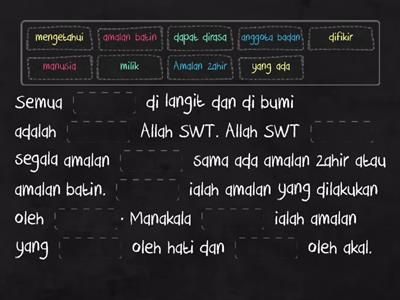 mengetahui amalan batin dapat dirasa anggota badan difikir
manusia milik Amalan zahir yang ada
Semua di langit dan di bumi
adalah Allah SWT. Allah SWT
segala amalan sama ada amalan zahir atau
amalan batin. ialah amalan yang dilakukan
oleh . Manakala ialah amalan
yang oleh hati dan oleh akal.